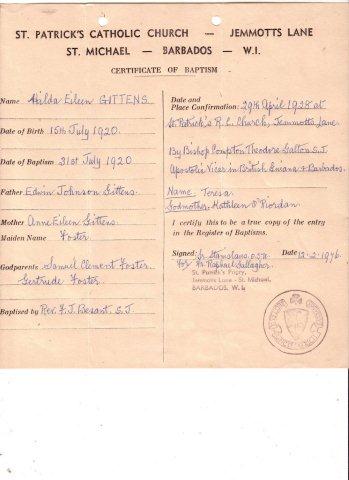 ST. PATRICK'S CATHOLIC CHURCH — JEMMOTTS LANE
ST. MICHAEL — BARBADOS — W.I.
CERTIFICATE OF BAPTISM
Name Hilda Eileen GITTENS
Date of Birth 15th July 1920.
Date of Baptism 31st July 1920
Father Edwin Johnson Gittens.
Mother Anne Eileen Gittens.
Maiden Name Foster.
Godparents Samuel Clement Foster.
Gertrude Foster.
Baptised by Rev. F. J. Besant. S.J.
Date and
Place Confirmation: 29th April 1928 at
St. Patrick's R.C. Church, Jemmotts Lane.
By Bishop Compton Theodore Galton S.J.
Apostolic Vicar in British Guiana & Barbados.
Name: Teresa.
Godmother: Kathleen O'Riordan.
I certify this to be a true copy of the entry
in the Register of Baptisms.
Signed: Sr. Stanslaus. Date 12-2-1976.
For Fr. Raphael Gallagher.
St. Patrick's Priory,
Jemmotts Lane - St. Michael,
BARBADOS, W.I.